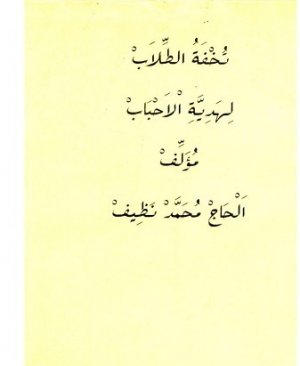 تُحْفَةُ الطُِّلَابْ
لِهَدِيَّةِ الْاَحْبَابْ
مُؤَلِّفْ
اَلْحَاجْ مُحَمَّدْ نَظِيفْ